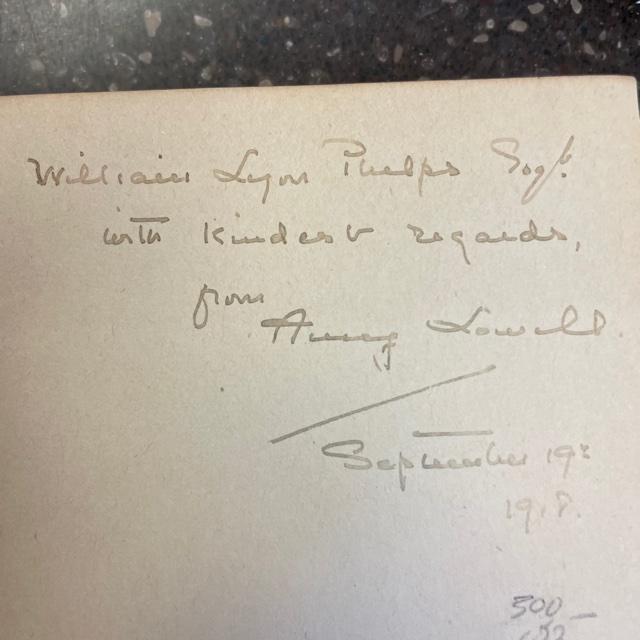 William Lyon Phelps Esq.
with kindest regards,
from
Amy Lowell
September 19:
1918.
500—